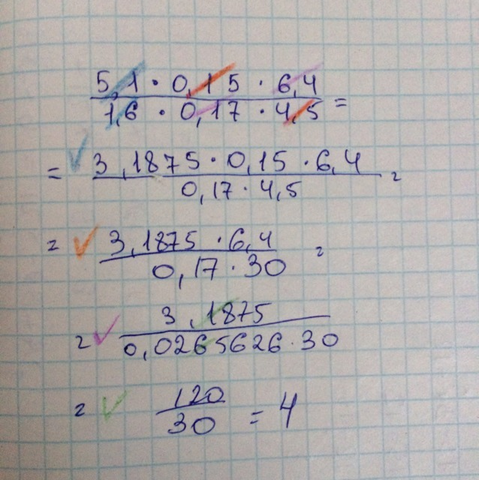 5,1 · 0,15 · 6,4
1,6 · 0,17 · 4,5 =
= 3,1875 · 0,15 · 6,4
0,17 · 4,5 =
= 3,1875 · 6,4
0,17 · 30 =
= 3,1875
0,0265626 · 30
= 120
30 = 4